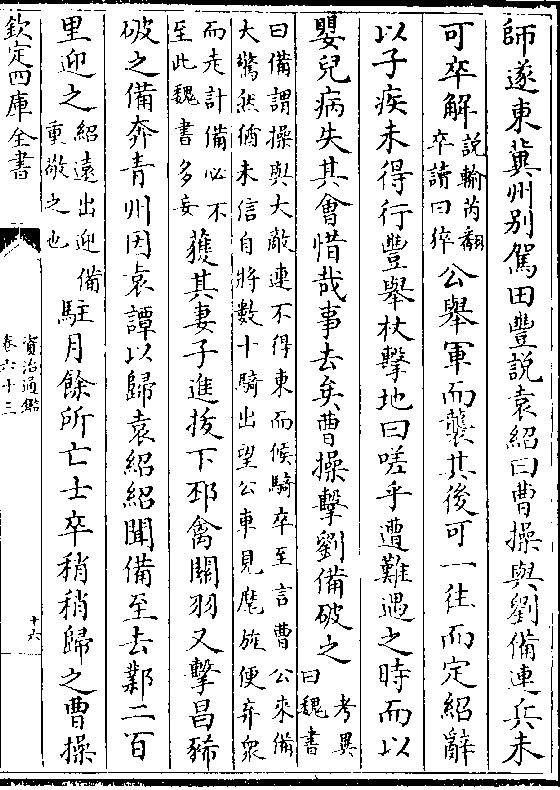 師遂東冀州别駕田豐說袁紹曰曹操與劉備連兵未
可卒解
說輸芮翻
卒讀曰猝
公舉軍而襲其後可一往而定紹辭
以子疾未得行豐舉杖擊地曰嗟乎遭難遇之時而以
嬰兒病失其會惜哉事去矣曹操擊劉備破之
考異
曰魏書
曰備謂操與大敵連不得東而候騎卒至言曹公來備
大驚然猶未信自將數十騎出望公車見麾旌便弃衆
而走計備必不
至此魏書多妄
獲其妻子進拔下邳禽關羽又擊昌豨
破之備奔青州因袁譚以歸袁紹紹聞備至去鄴二百
里迎之
紹遠出迎備
重敬之也
駐月餘所亡士卒稍稍歸之曹操
欽定四庫全書
資治通鑑
卷六十三
十六